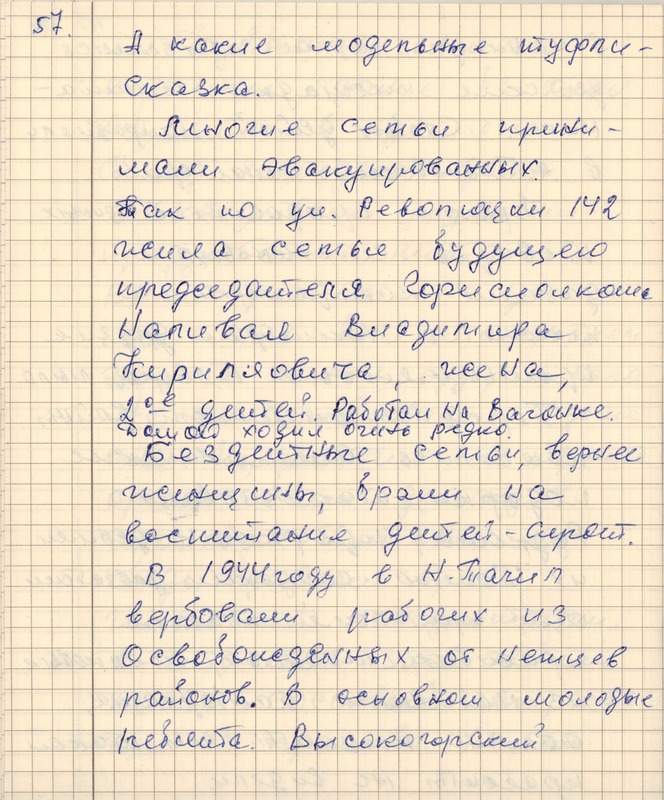 57.
А какие модельные туфли -
сказка.
Многие семьи прини-
мали эвакуированных.
Так по ул. Революции 142
жила семья будущего
председателя Горисполкома
Наливая Владимира
Кирилловича, жена,
2ое детей. Работал на Вагонке.
Домой ходил очень редко.
Бездетные семьи, вернее
женщины, брали на
воспитания детей-сирот.
В 1944 году в Н.Тагил
вербовали рабочих из
освобождённых от немцев
районов. В основном молодые
ребята. Высокогорский